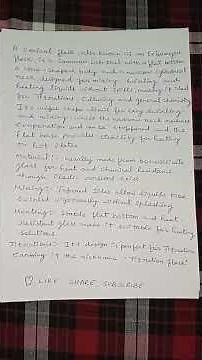 A conical flask also known as an Erlenmeyer
flask, is a common lab tool with a flat bottom
cone-shaped body and a narrow cylindrical
neck designed for mixing, swirling and
heating liquids without spills, making it ideal
for Titrations Culturing and general chemistry
Its unique shape allows for easy swirling
and mixing while the narrow neck reduces
evaporation and can be stoppered and the
flat base provides stability for heating
on hot plates
Material:- usually made from borosilicate
glass for heat and chemical resistance
though Plastic versions exist
Mixing:- Tapered sides allow liquids to be
swirled vigorously without splashing
Heating:- Stable flat bottom and heat
resistant glass make it suitable for heating
solutions
Titrations:- It's design is perfect for Titration
earning it the nickname "Titration flask"
LIKE SHARE SUBSCRIBE